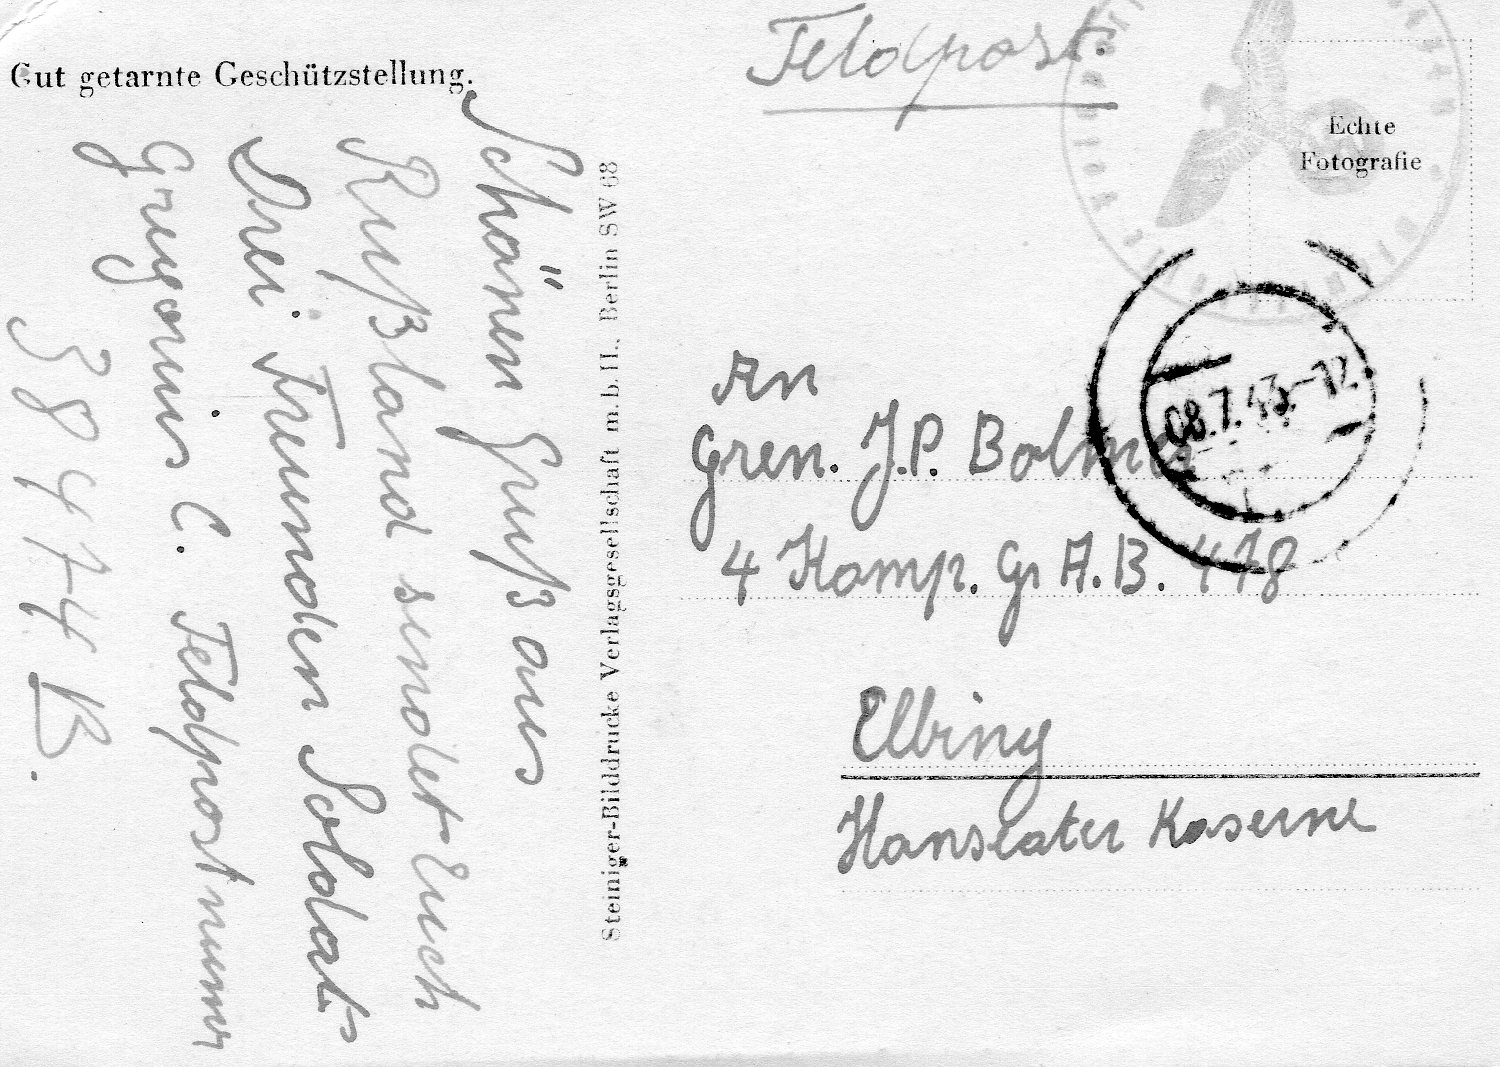 Gut getarnte Geschützstellung.
Schönen Gruß aus
Rußland sendet Euch
Drei Freunden Soldat
Gregorius C. Feldpostnummer
38474 B.
Steiniger-Bilddrucke Verlagsgesellschaft m.b.H., Berlin SW 68
Feldpost.
Echte
Fotografie
08.7.43.-12
An
Gren. J.P. Bolmes
4 Komp. Gr A.B. 478
Elbing
Hanseater Kaserne